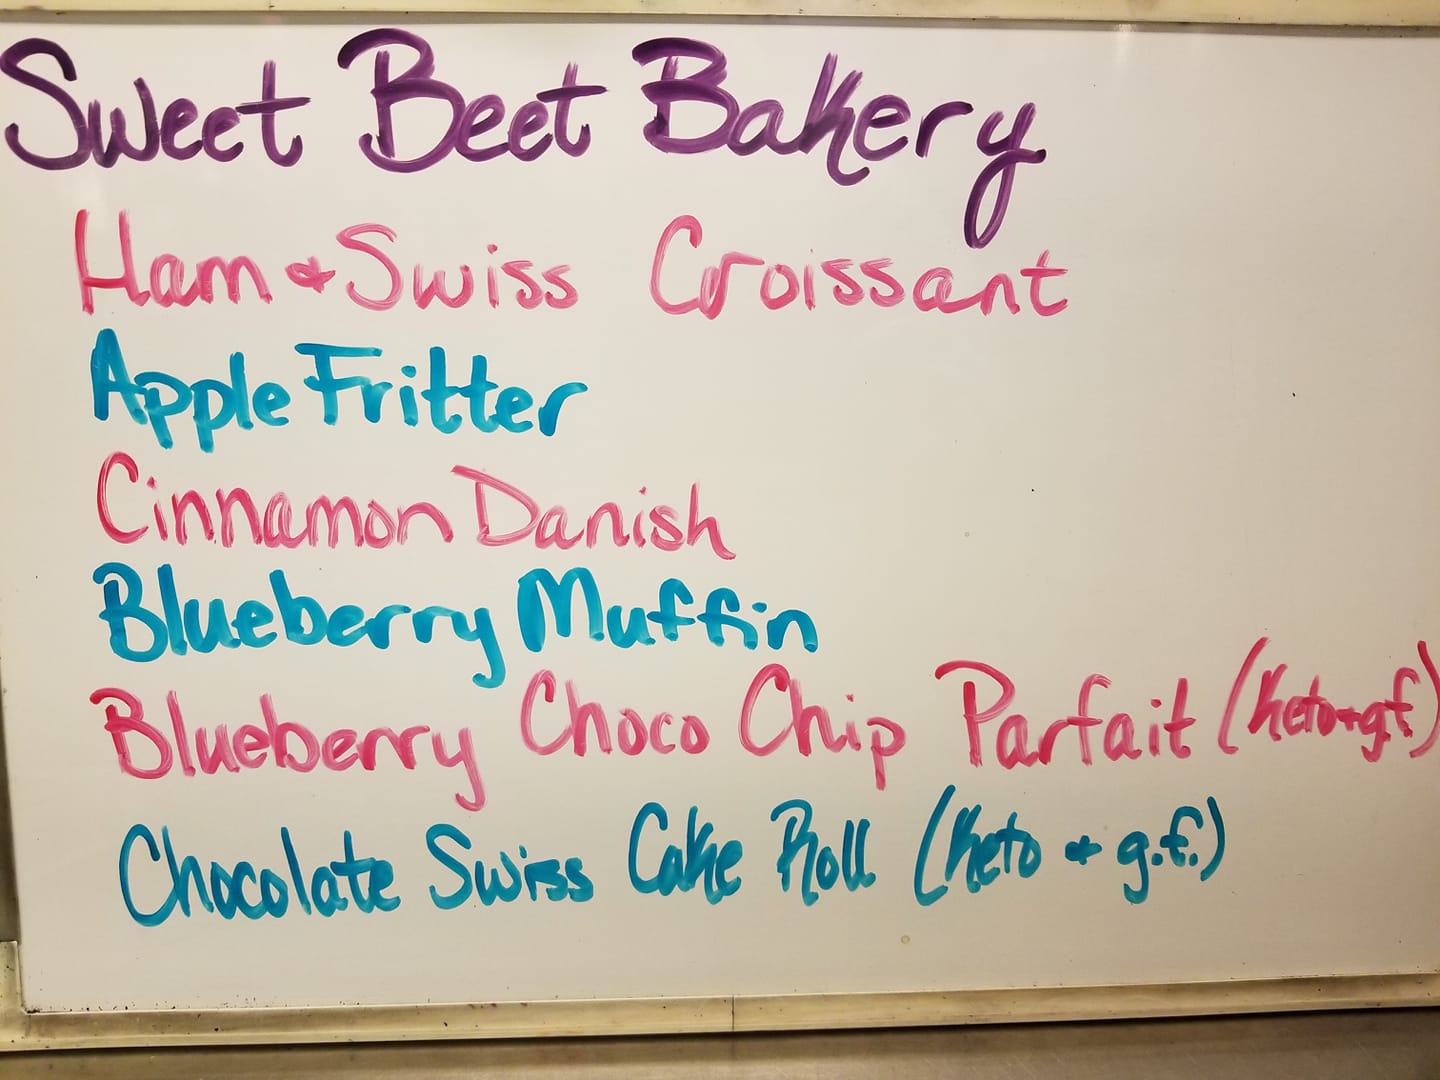 Sweet Beet Bakery
Ham & Swiss Croissant
Apple Fritter
Cinnamon Danish
Blueberry Muffin
Blueberry Choco Chip Parfait (Keto + g.f.)
Chocolate Swiss Cake Roll (Keto & g.f.)